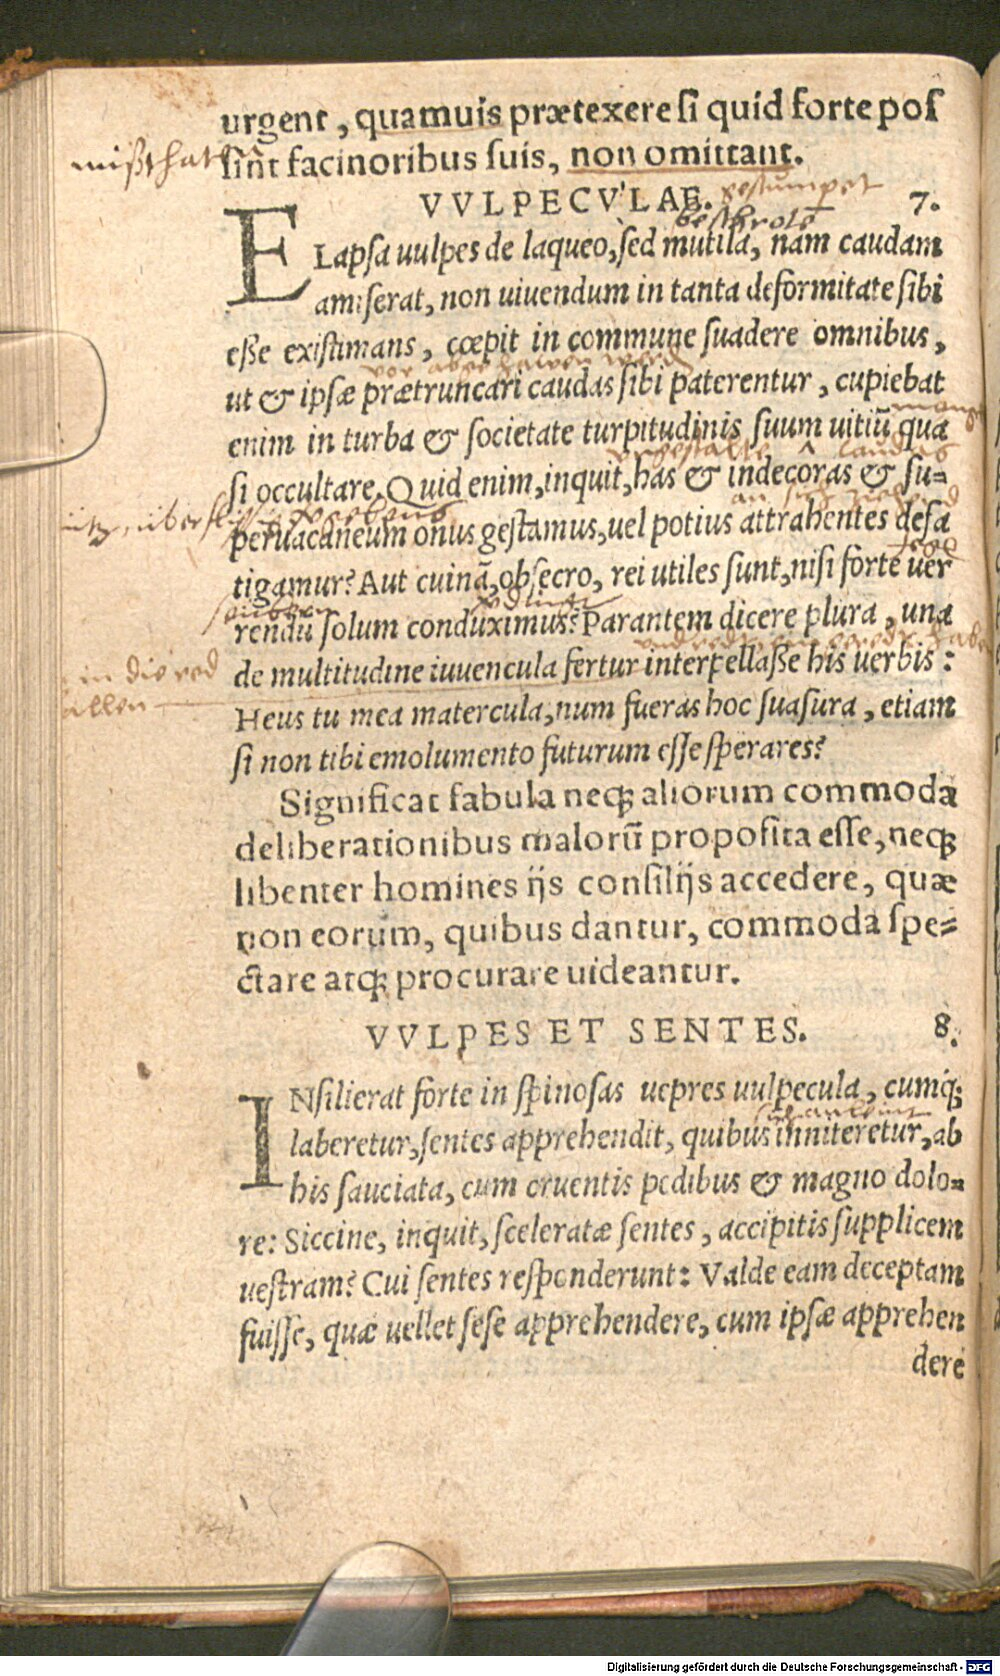 urgent, quamuis prætexere si quid forte pos
sint facinoribus suis, non omittant.
VVLPECVLAE. 7.
ELapsa uulpes de laqueo, sed mutila, nam caudam
amiserat, non uiuendum in tanta deformitate sibi
esse existimans, cœpit in commune suadere omnibus,
ut & ipsæ prætruncari caudas sibi paterentur, cupiebat
enim in turba & societate turpitudinis suum uitiũ qua
si occultare. Quid enim, inquit, has & indecoras & su-
peruacaneum onus gestamus, uel potius attrahentes defa
tigamur? Aut cuinã, obsecro, rei utiles sunt, nisi forte uer
rendũ solum conduximus? Parantem dicere plura, una
de multitudine iuuencula fertur interpellasse his uerbis:
Heus tu mea matercula, num fueras hoc suasura, etiam
si non tibi emolumento futurum esse sperares?
Significat fabula neq; aliorum commoda
deliberationibus malorũ proposita esse, neq;
libenter homines ijs consilijs accedere, quæ
non eorum, quibus dantur, commoda spe-
ctare atq; procurare uideantur.
VVLPES ET SENTES. 8.
INsilierat forte in spinosas uepres uulpecula, cumq;
laberetur, sentes apprehendit, quibus inniteretur, ab
his sauciata, cum cruentis pedibus & magno dolo-
re: Siccine, inquit, sceleratæ sentes, accipitis supplicem
uestram? Cui sentes responderunt: Valde eam deceptam
fuisse, quæ uellet sese apprehendere, cum ipsæ apprehen
dere
mißthat
in die red
fallen
Digitalisierung gefördert durch die Deutsche Forschungsgemeinschaft - DFG